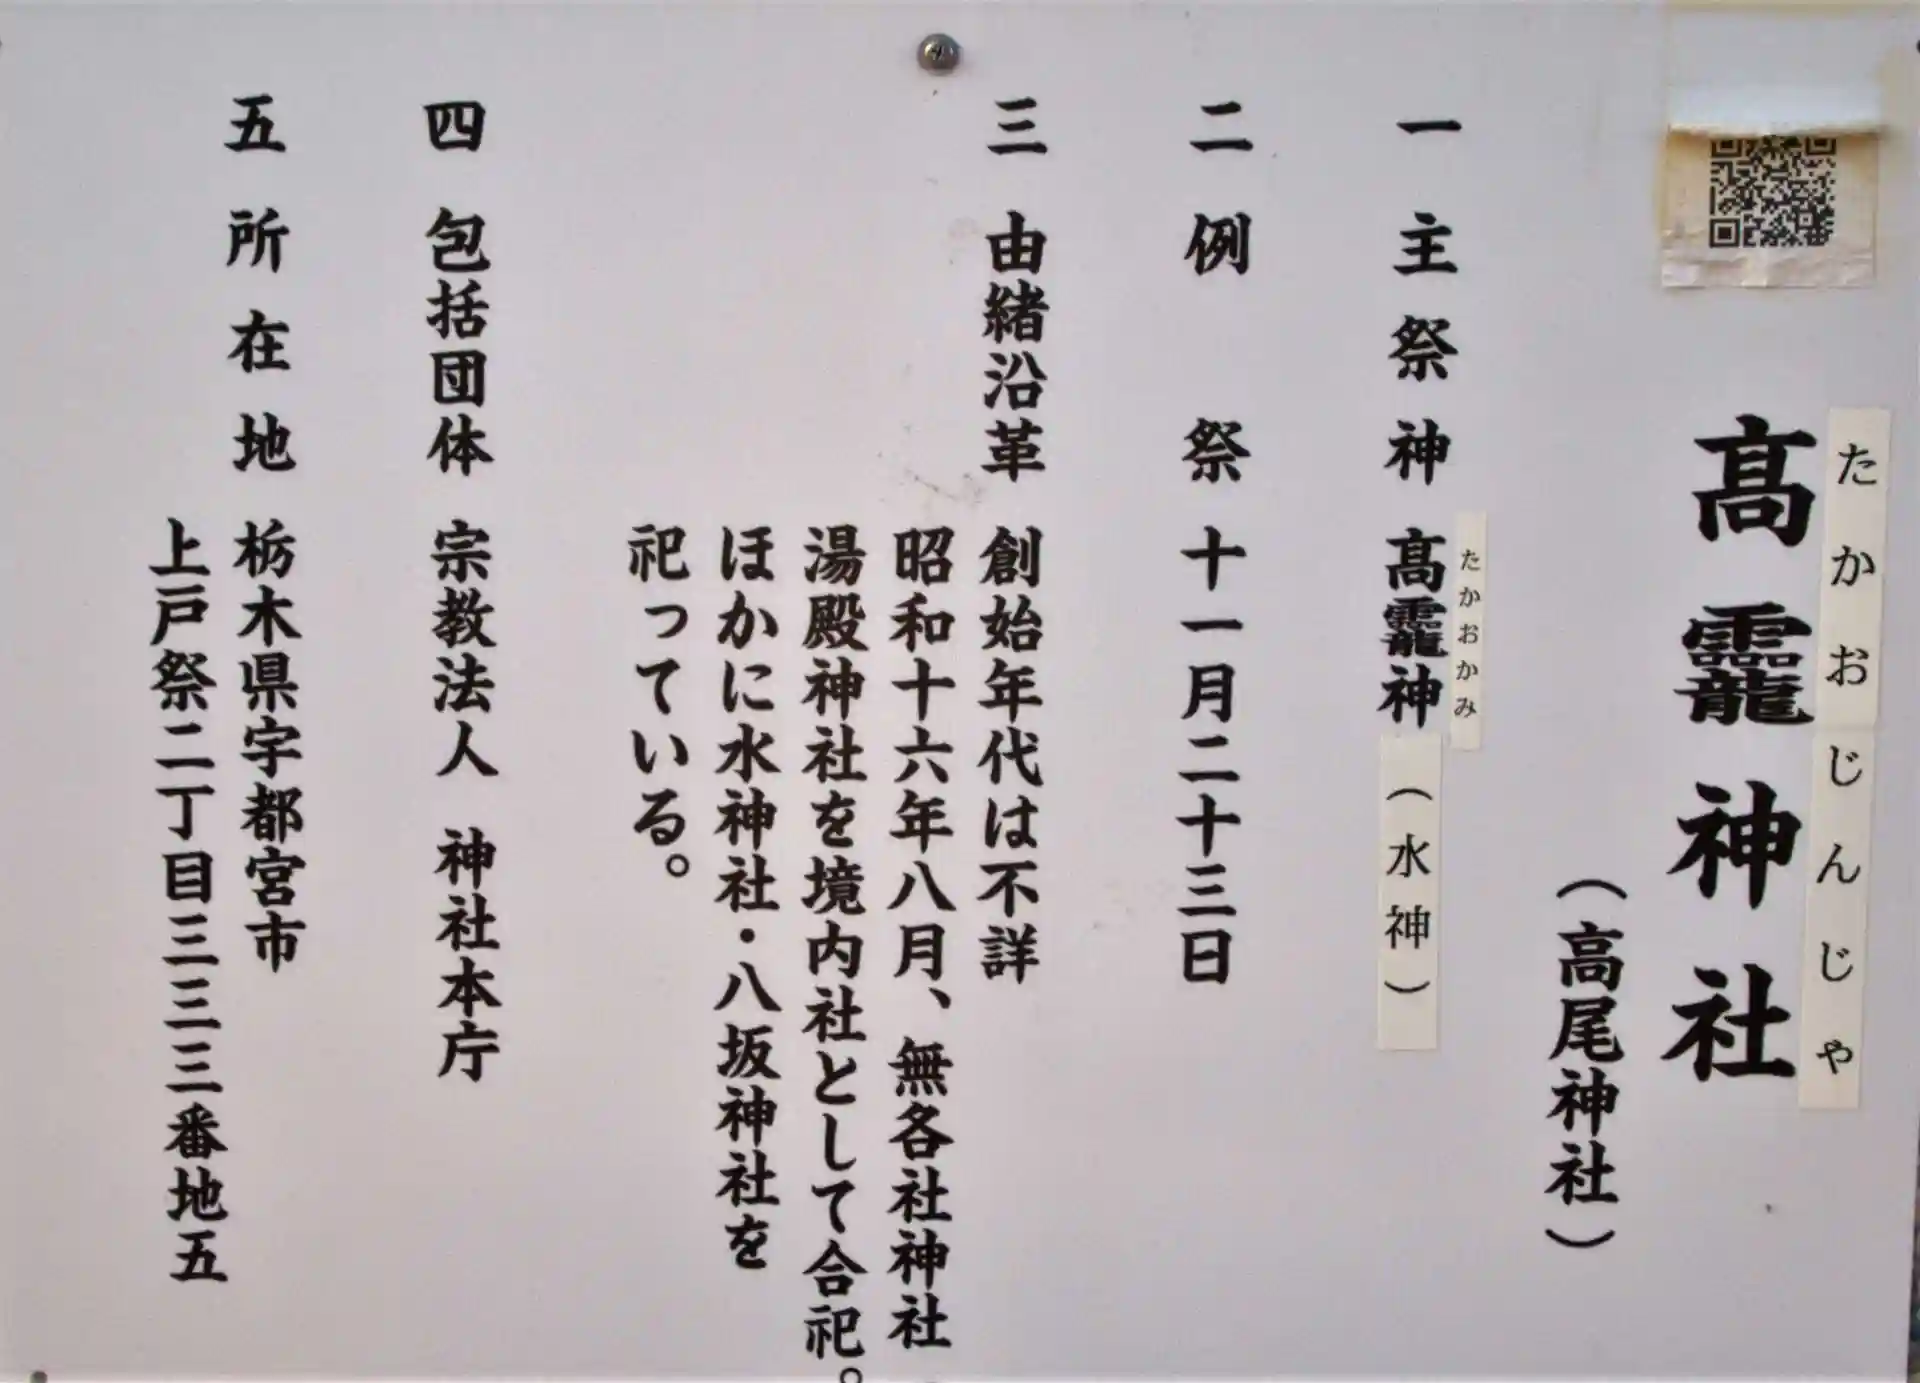 たかおじんじゃ
髙龗神社
（高尾神社）
一 主祭神 髙龗神（水神）
たかおかみ
二 例祭 十一月二十三日
三 由緒沿革 創始年代は不詳
昭和十六年八月、無各社神社
湯殿神社を境内社として合祀。
ほかに水神社・八坂神社を
祀っている。
四 包括団体 宗教法人 神社本庁
五 所在地 栃木県宇都宮市
上戸祭二丁目三三三番地五